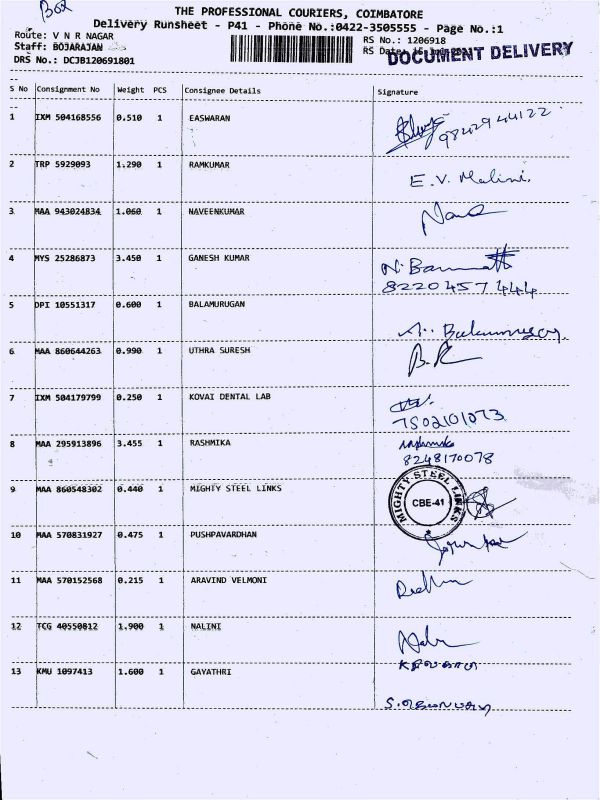 Box
THE PROFESSIONAL COURIERS, COIMBATORE
Delivery Runsheet - P41 - Phone No.:0422-3505555 - Page No.:1
Route: V N R NAGAR
RS No.: 1206918
Staff: BOJARAJAN
RS Date
DOCUMENT DELIVERY
DRS No.: DCJB120691801
S No Consignment No Weight PCS Consignee Details Signature
1 IXM 504168556 0.510 1 EASWARAN 9842944122
2 TRP 5929093 1.290 1 RAMKUMAR E.V. Malini.
3 MAA 943024834 1.060 1 NAVEENKUMAR
4 MYS 25286873 3.450 1 GANESH KUMAR
8220457444
5 DPI 10551317 0.600 1 BALAMURUGAN
6 MAA 860644263 0.990 1 UTHRA SURESH
7 IXM 504179799 0.250 1 KOVAI DENTAL LAB
7502101073
8 MAA 295913896 3.455 1 RASHMIKA
8248170078
9 MAA 860548302 0.440 1 MIGHTY STEEL LINKS
MIGHTY STEEL LINKS
CBE-41
10 MAA 570831927 0.475 1 PUSHPAVARDHAN
11 MAA 570152568 0.215 1 ARAVIND VELMONI
12 TCG 40550812 1.900 1 NALINI
13 KMU 1097413 1.600 1 GAYATHRI